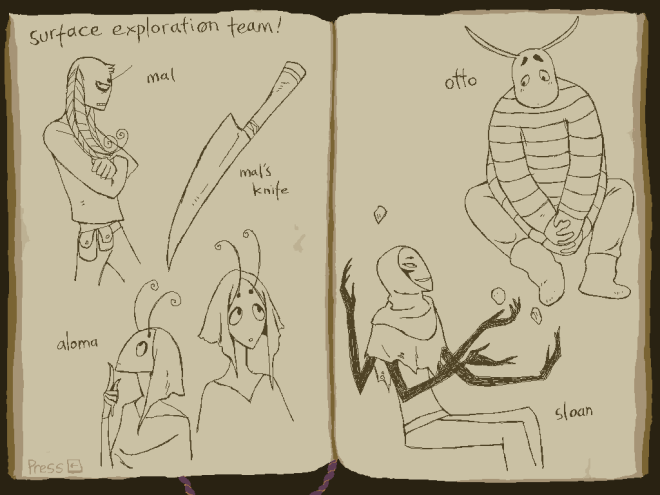 surface exploration team!
mal
mal's
knife
aloma
Press
otto
sloan